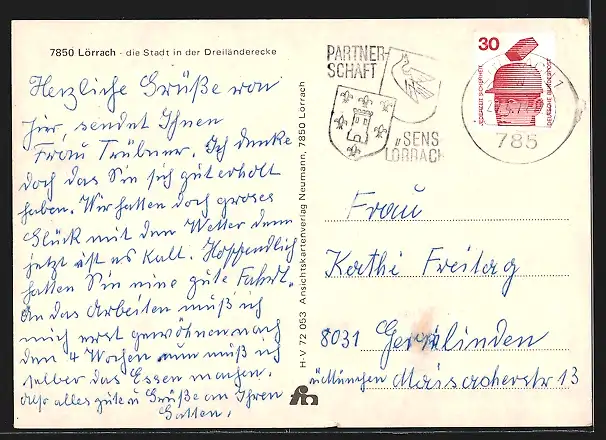 7850 Lörrach - die Stadt in der Dreiländerecke
Herzliche Grüße von
hier, sendet Ihnen
Frau Trübner. Ich denke
doch das Sie sich gut erholt
haben. Wir hatten doch groses
Glück mit dem Wetter denn
jetzt ist es kalt. Hoffendlich
hatten Sie eine gute Fahrt.
An das Arbeiten muß ich
mich erst gewöhnen nach
den 4 Wochen nun muß ich
selber das Essen machen.
Also alles gute u Grüße an Ihren
Gatten.
H-V 72 053 Ansichtskartenverlag Neumann, 7850 Lörrach
PARTNER-
SCHAFT
SENS
LÖRRACH
30
JEDERZEIT SICHERHEIT
DEUTSCHE BUNDESPOST
785
Frau
Kathi Freitag
8031 Geisslinden
ü München Maisacherstr 13